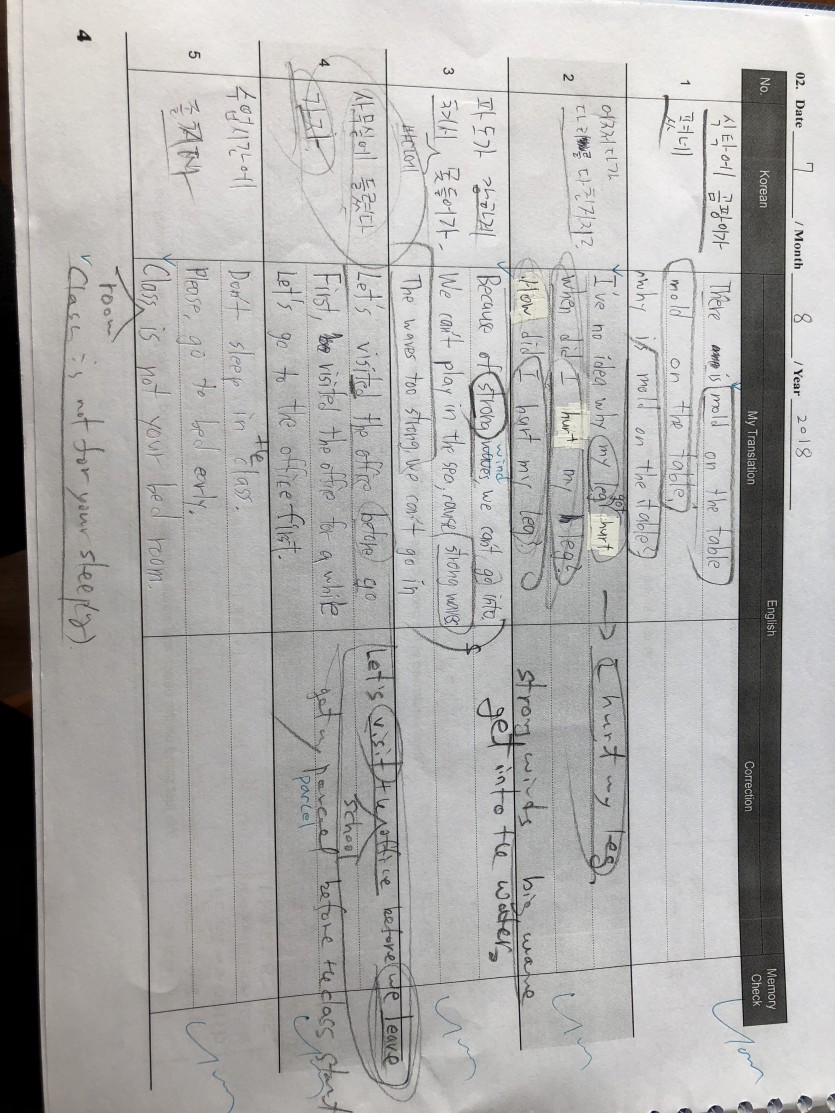 02. Date 7 / Month 8 / Year 2018
No. Korean My Translation English Correction Memory Check
1
식탁에 곰팡이가
There is mold on the table
mold on the table.
Why is mold on the table?
2
어쩌다가
다리를 다친거지?
I've no idea why my leg got hurt → I hurt my leg
When did I hurt my leg?
How did I hurt my leg?
strong winds big wave
3
파도가 강하게
Because of strong wind waves, we can't go into
get into the water.
We can't play in the sea, cause strong waves
The waves too strong we can't go in
때문에
4
사무실에 들렀다
가자.
Let's visited the office before go
Let's visit the office before we leave
school
First, visited the office for a while
get my parcel before the class start
parcel
Let's go to the office first.
5
수업시간에
Don't sleep in the class.
Please, go to bed early.
Class is not your bed room.
room
Class is not for your sleep(ing)
4